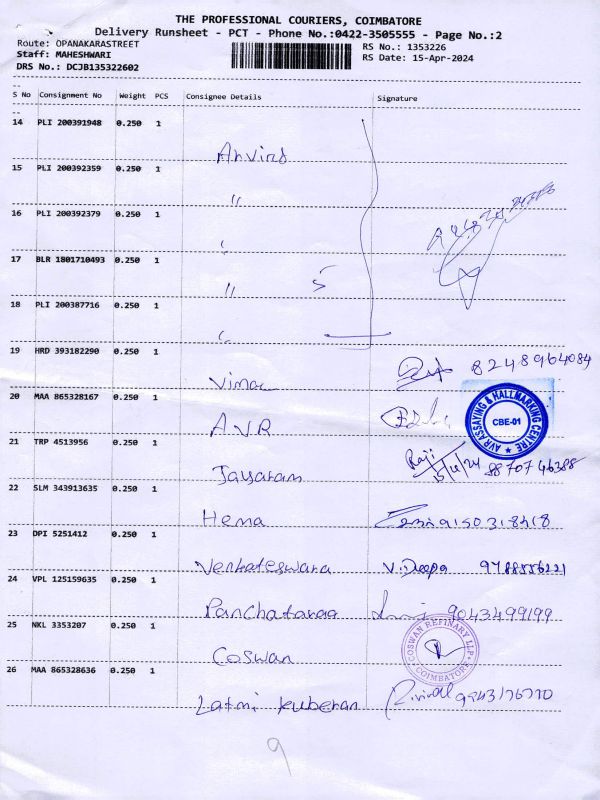 THE PROFESSIONAL COURIERS, COIMBATORE
Delivery Runsheet - PCT - Phone No.:0422-3505555 - Page No.:2
Route: OPANAKARASTREET
RS No.: 1353226
Staff: MAHESHWARI
RS Date: 15-Apr-2024
DRS No.: DCJB135322602
S No Consignment No Weight PCS Consignee Details Signature
14 PLI 200391948 0.250 1
Arvind
15 PLI 200392359 0.250 1
"
16 PLI 200392379 0.250 1
17 BLR 1801710493 0.250 1
" 5
18 PLI 200387716 0.250 1
19 HRD 393182290 0.250 1
Vimal 8248964084
20 MAA 865328167 0.250 1
AVR
AVR ASSAYING & HALLMARKING CENTRE
CBE-01
21 TRP 4513956 0.250 1
Jayaram Raji 15/4/24 88707 46388
22 SLM 343913635 0.250 1
Hema
23 DPI 5251412 0.250 1
Venkateswara V. Deepa
24 VPL 125159635 0.250 1
9043499199
25 NKL 3353207 0.250 1
Coswan
COSWAN REFINERY LLP
COIMBATORE
26 MAA 865328636 0.250 1
Laxmi Kuberan
9